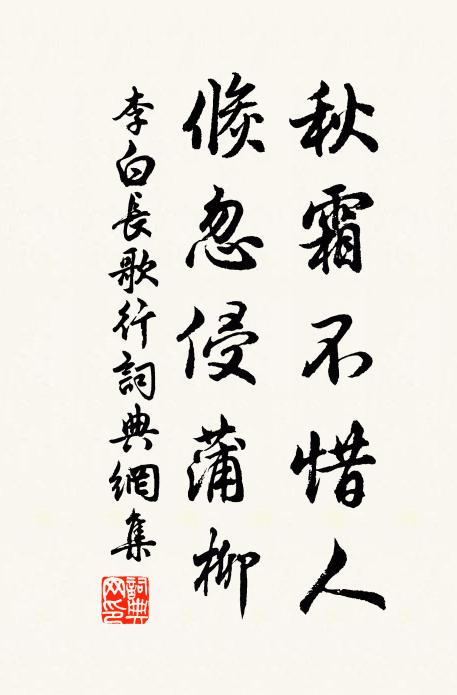 秋霜不惜人
倏忽侵蒲柳
李白長歌行詞典網集
詞典網印